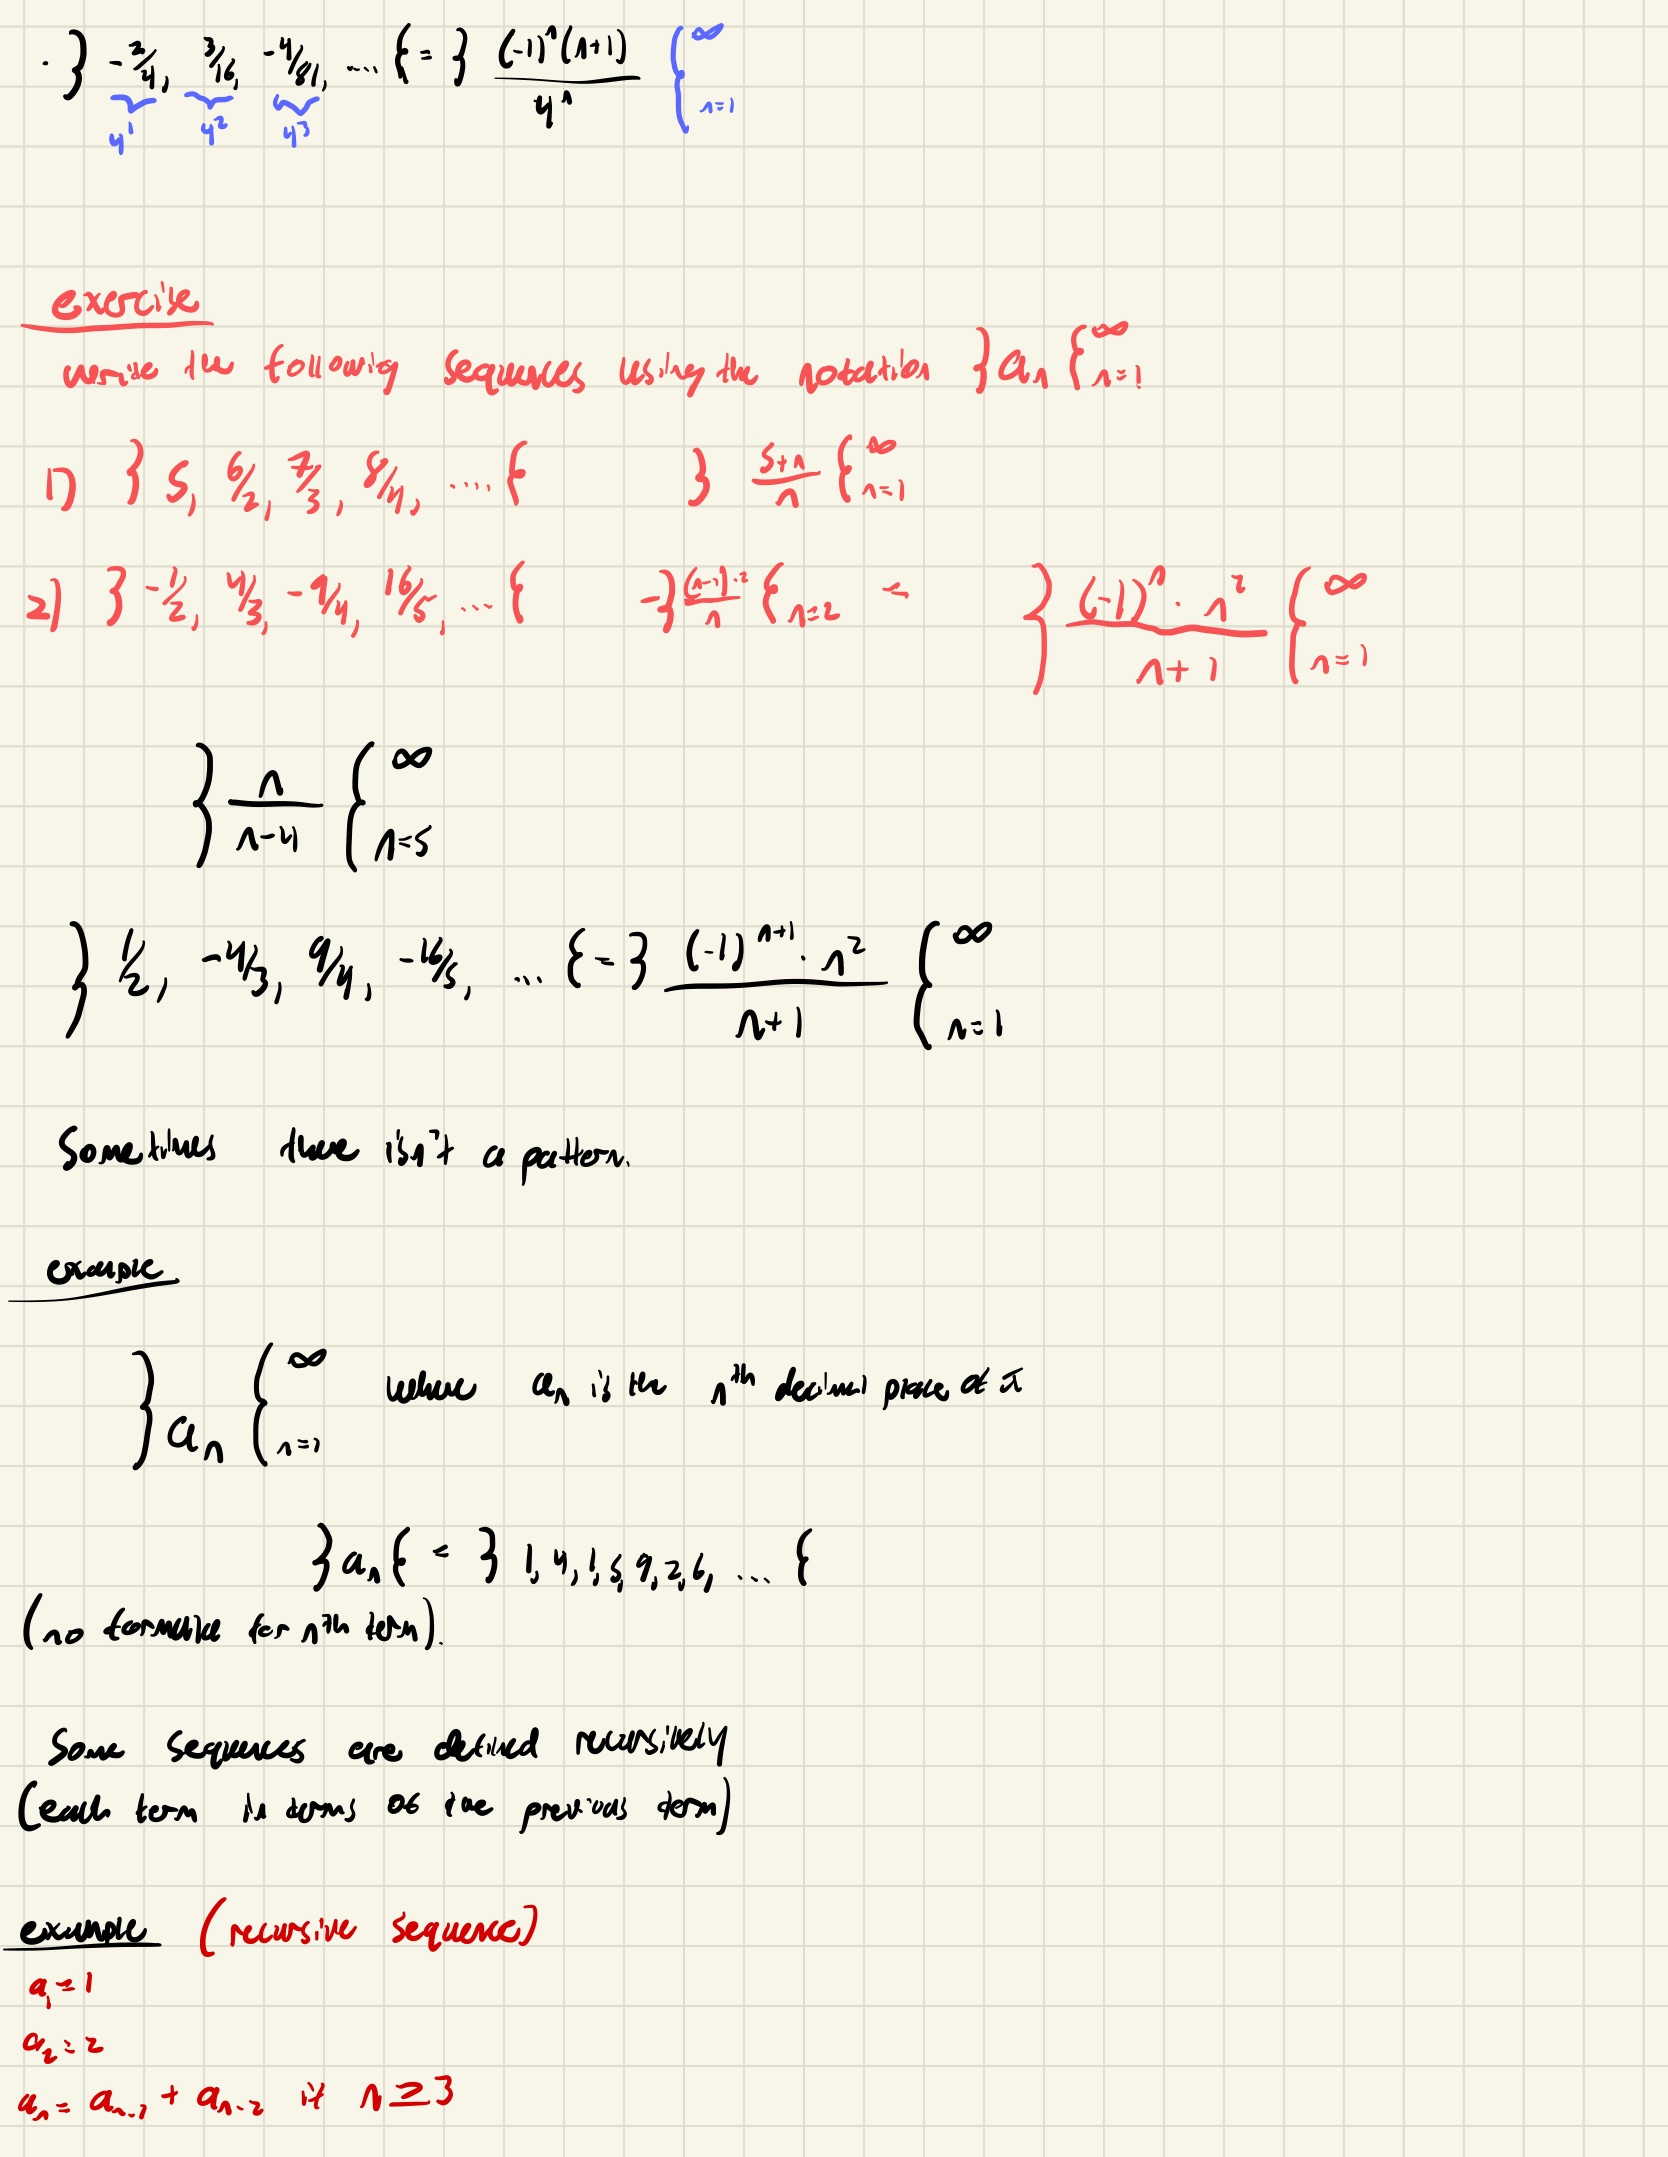 . } -2/4, 3/16, -4/81, .... { = } (-1)^n (n+1) / 4^n { ∞ n=1
4^1 4^2 4^3
exercise
write the following sequences using the notation } a_n { ∞ n=1
1) } 5, 6/2, 7/3, 8/4, .... { } 5+n / n { ∞ n=1
2) } -1/2, 4/3, -9/4, 16/5, ... { -} (n-1)·2 / n { n=2 = } (-1)^n · n^2 / n+1 { ∞ n=1
} n / n-4 { ∞ n=5
} 1/2, -4/3, 9/4, -16/5, ... { = } (-1)^n+1 · n^2 / n+1 { ∞ n=1
Sometimes there isn't a pattern.
example
} a_n { ∞ n=1 where a_n is the n^th decimal place of π
} a_n { = } 1, 4, 1, 5, 9, 2, 6, ... {
(no formula for n^th term).
Some sequences are defined recursively
(each term in terms of the previous term)
example (recursive sequence)
a_1 = 1
a_2 = 2
a_n = a_n-1 + a_n-2 if n ≥ 3